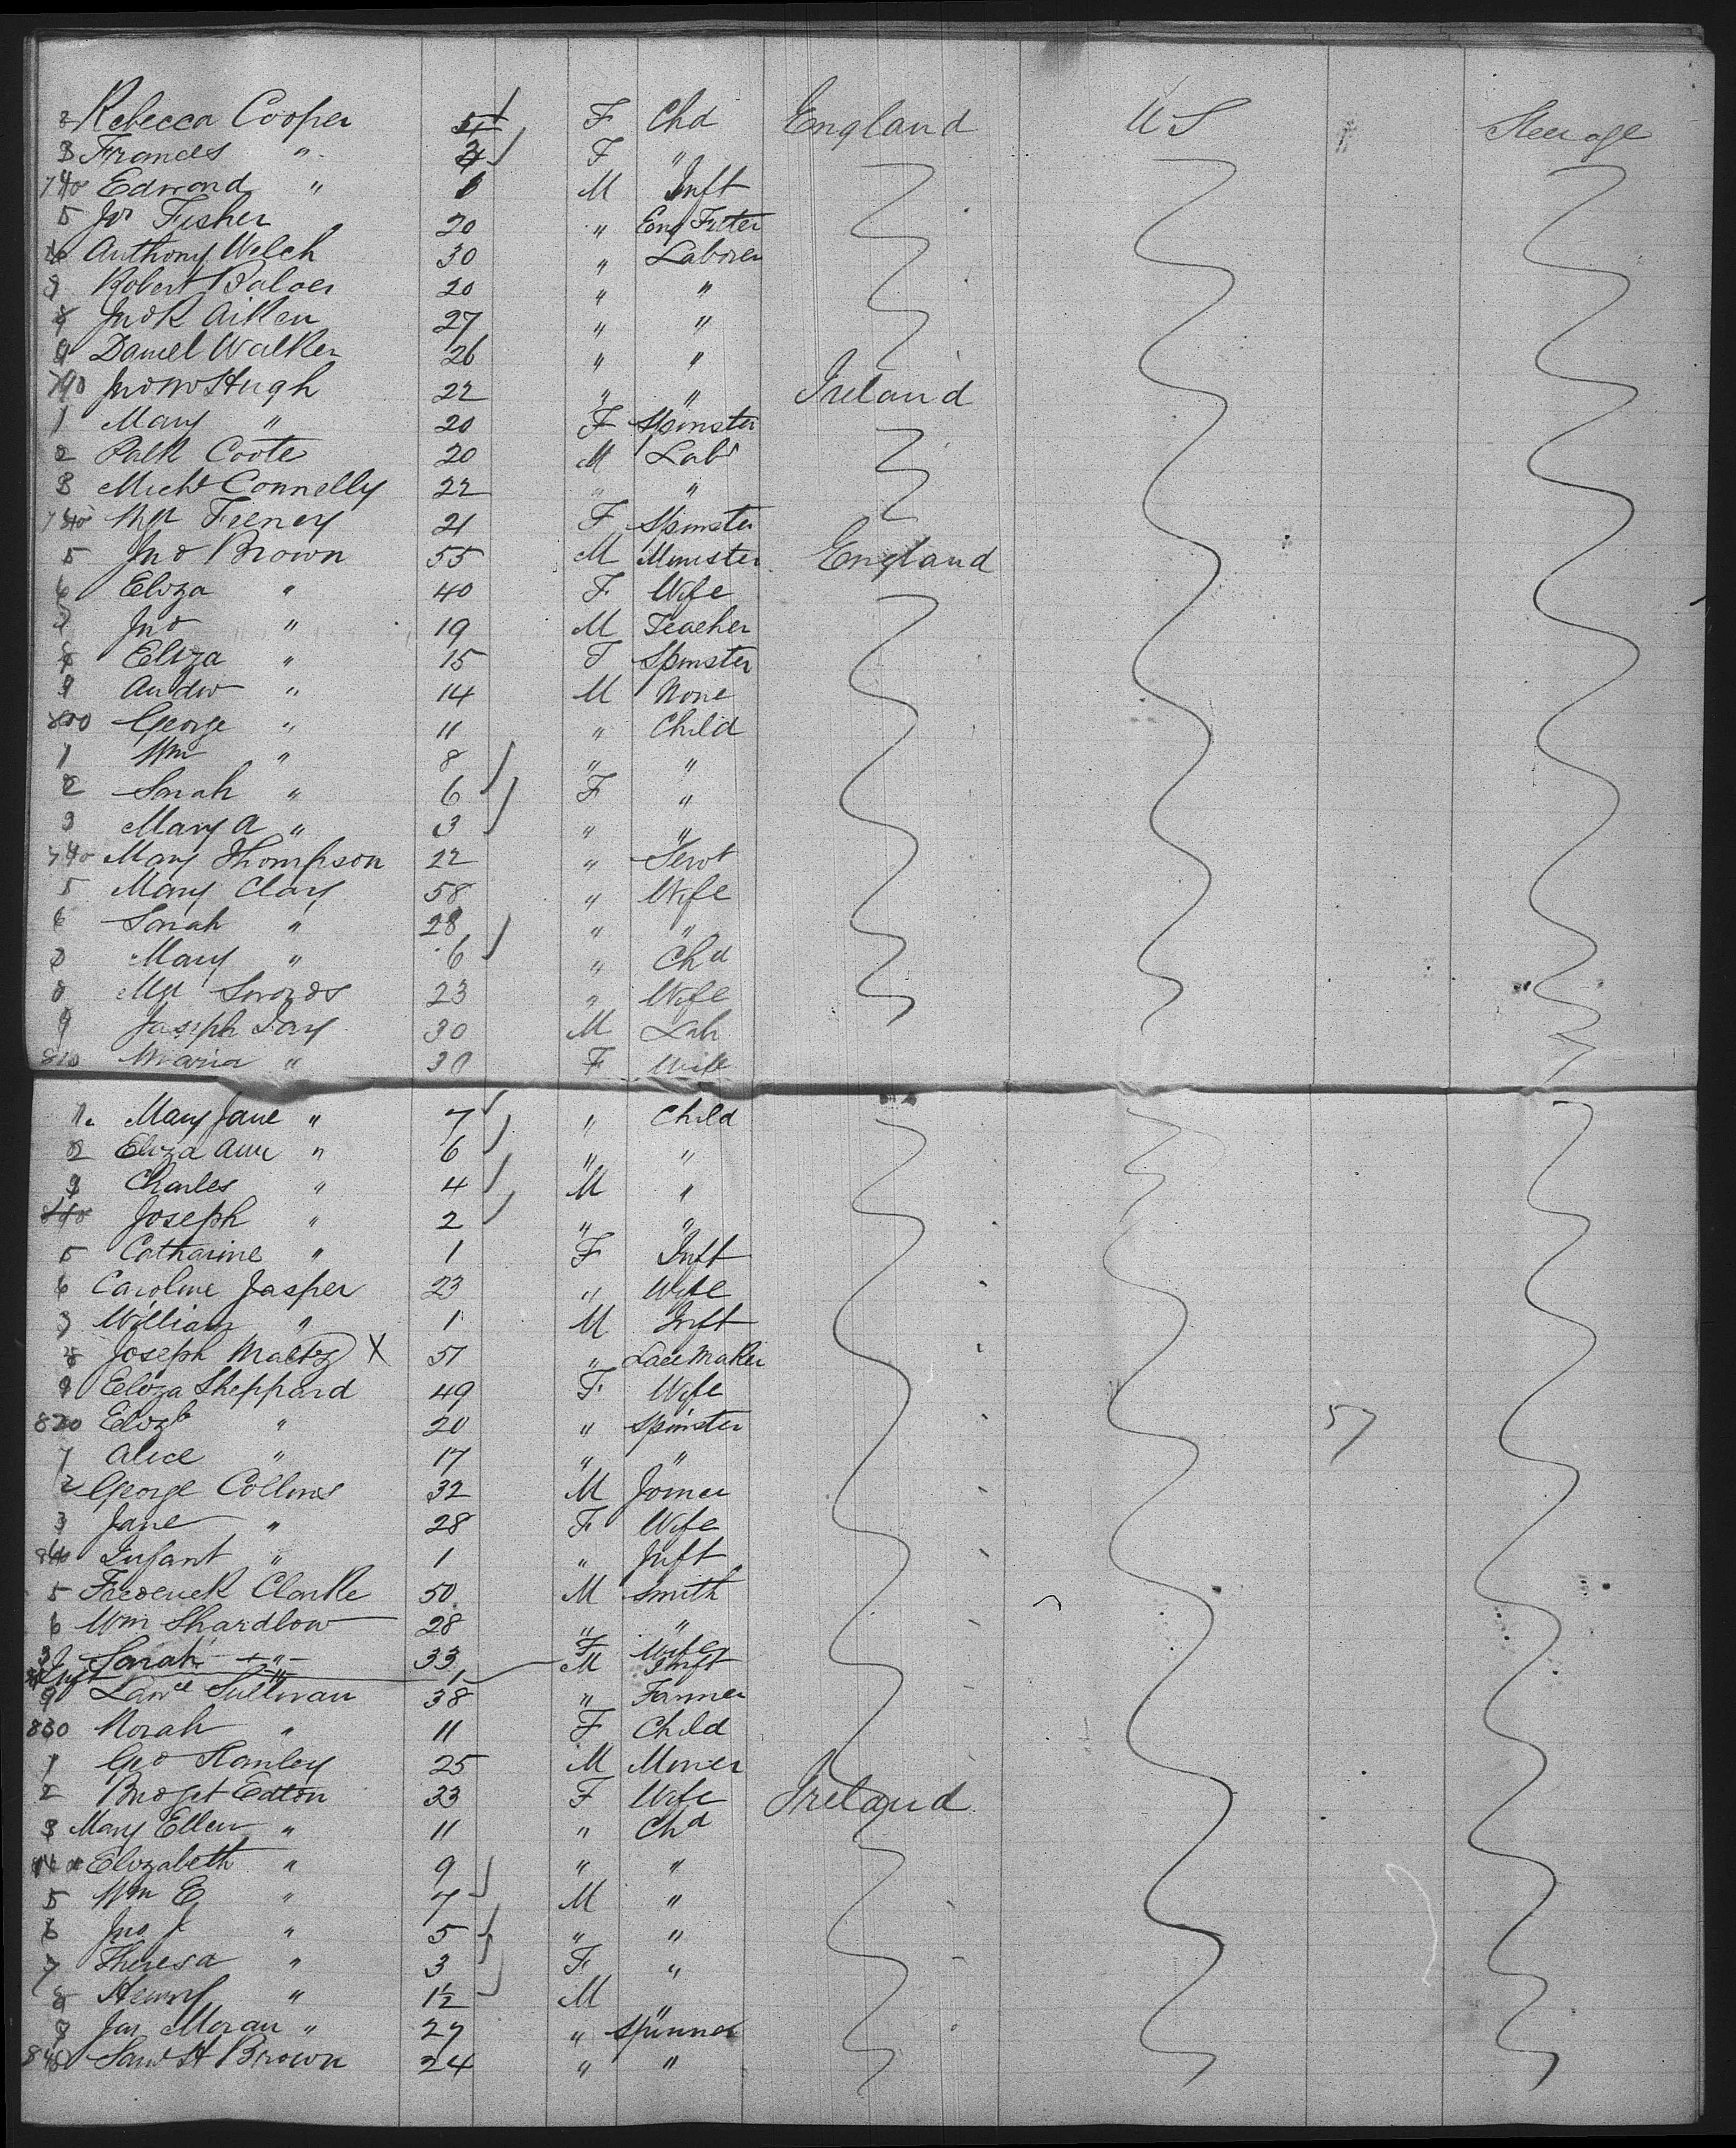 2 Rebecca Cooper 5 F Chd England US Steerage
3 Frances " 4 F "
Edmond " 1 M Inft
5 Fisher 20 " Eng Fitter
6 Anthony Welch 30 " Laborer
Robert 20 " "
8 Jno R Aitken 27 " "
9 Daniel Walker 26 " "
790 Jno McHugh 22 " " Ireland
1 Mary " 20 F Spinster
2 Patk Coote 20 M Labr
3 Michl Connelly 22 " "
Mgt Feeney 21 F Spinster
5 Jno Brown 55 M Minister England
6 Eliza " 40 F Wife
Jno " 19 M Teacher
8 Eliza " 15 F Spinster
9 Andw " 14 M None
800 George " 11 " Child
1 Wm " 8 " "
2 Sarah " 6 F "
3 Mary A " 3 " "
Mary Thompson 22 " Servt
5 Mary Clay 58 " Wife
6 Sarah " 28 " "
Mary " 6 " Chd
8 23 " Wife
9 Joseph 30 M Lab
810 Maria " 30 F Wife
1 Mary Jane " 7 " Child
2 Eliza Ann " 6 " "
3 Charles " 4 M "
Joseph " 2 " "
5 Catharine " 1 F Inft
6 Caroline Jasper 23 " Wife
7 William " 1 M Inft
8 Joseph Maltby X 51 " Lace Maker
9 Eliza Sheppard 49 F Wife
820 Elizb " 20 " Spinster 57
1 Alice " 17 " "
2 George Collins 32 M Joiner
3 Jane " 28 F Wife
Infant " 1 " Inft
5 Frederick Clarke 50 M Smith
6 Wm Shardlow 28 " "
7 Sarah " 33 F Wife
Inft " 1 M Inft
9 Lawce Sullivan 38 " Farmer
830 Norah " 11 F Child
1 Geo Stanley 25 M Miner
2 Bridget Edton 33 F Wife Ireland
3 Mary Ellen " 11 " Chd
Elizabeth " 9 " "
5 Wm E " 7 M "
6 Jno J " 5 " "
7 Theresa " 3 F "
8 Henry " 1½ M "
9 Moran " 27 " Spinner
840 Saml H Brown 24 " "